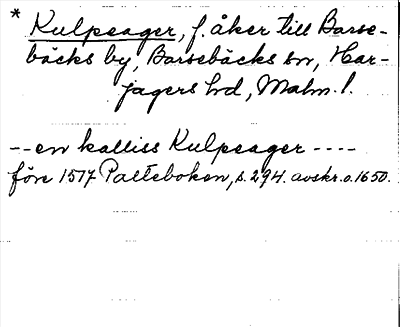 * Kulpeager, f. åker till Barse-
bäcks by, Barsebäcks sn, Har-
jagers hd, Malm. l.
-- en kalliss Kulpeager ----
före 1517 Palteboken, s. 294. avskr. o. 1650.